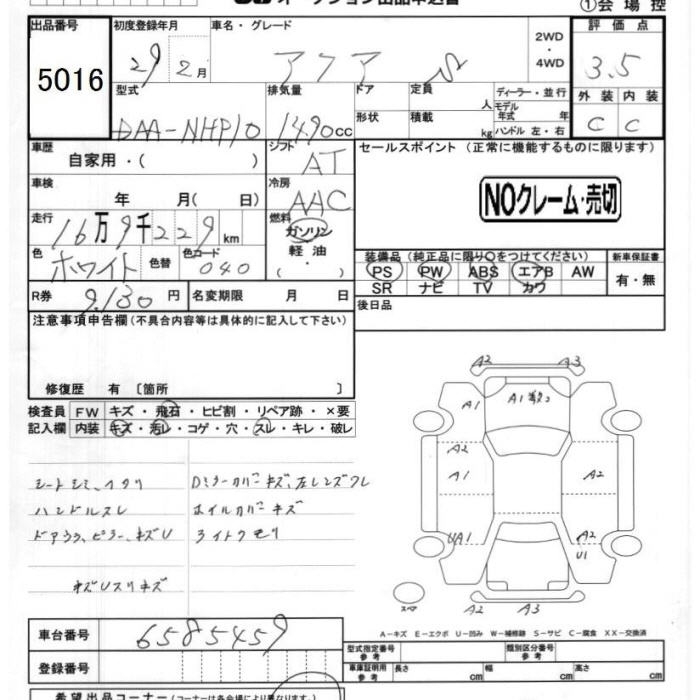 オークション出品申込書
①会場控
出品番号 5016
初度登録年月 29年2月
車名・グレード アクア S
2WD・4WD
評価点 3.5
外装 C 内装 C
型式 DAA-NHP10
排気量 1490cc
ドア 形状
定員 人 積載 kg
ディーラー・並行
モデル年式 年
ハンドル 左・右
車歴 自家用・( )
シフト AT
セールスポイント (正常に機能するものに限ります)
NOクレーム・売切
車検 年 月( 日)
冷房 AAC
走行 16万9千229km
燃料 ガソリン 軽油 ( ・ )
色 ホワイト 色替 色コード 040
装備品 (純正品に限り○をつけてください)
新車保証書
PS PW ABS エアB AW
有・無
SR ナビ TV カワ
R券 9,130円 名変期限 月 日
後日品
注意事項申告欄 (不具合内容等は具体的に記入して下さい)
修復歴 有 [箇所 ]
検査員 FW キズ・飛石・ヒビ割・リペア跡・×要
記入欄 内装 キズ・汚レ・コゲ・穴・スレ・キレ・破レ
シートシミ、
Dミラーカバーキズ、左レンズワレ
ハンドルスレ
ホイルカバーキズ
ドアウラ、ピラー、キズU
ライトクモリ
キズUスリキズ
A2 A3
A1 A1
A2
A1 A2
UA1 A2
U1
スペア
A2 A3
A-キズ E-エクボ U-凹み W-補修跡 S-サビ C-腐食 XX-交換済
車台番号 6585459
型式指定番号 参考
類別区分番号 参考
登録番号
車庫証明用 参考 長さ cm 幅 cm 高さ cm
希望出品コーナー (コーナーは各会場により異なります)